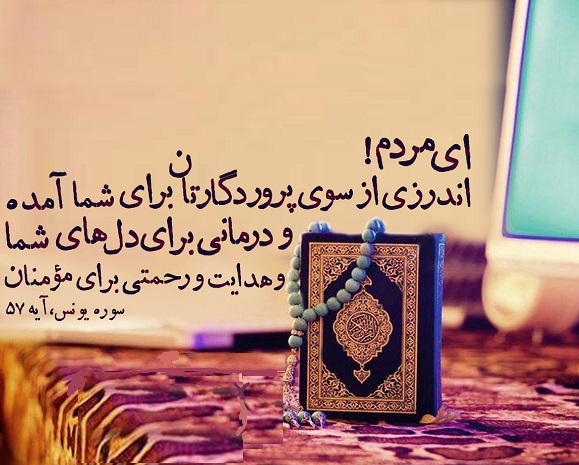 ای مردم!
اندرزی از سوی پروردگارتان برای شما آمده
و درمانی برای دل‌های شما
و هدایت و رحمتی برای مؤمنان
سوره یونس، آیه ۵۷
القرآن الكريم